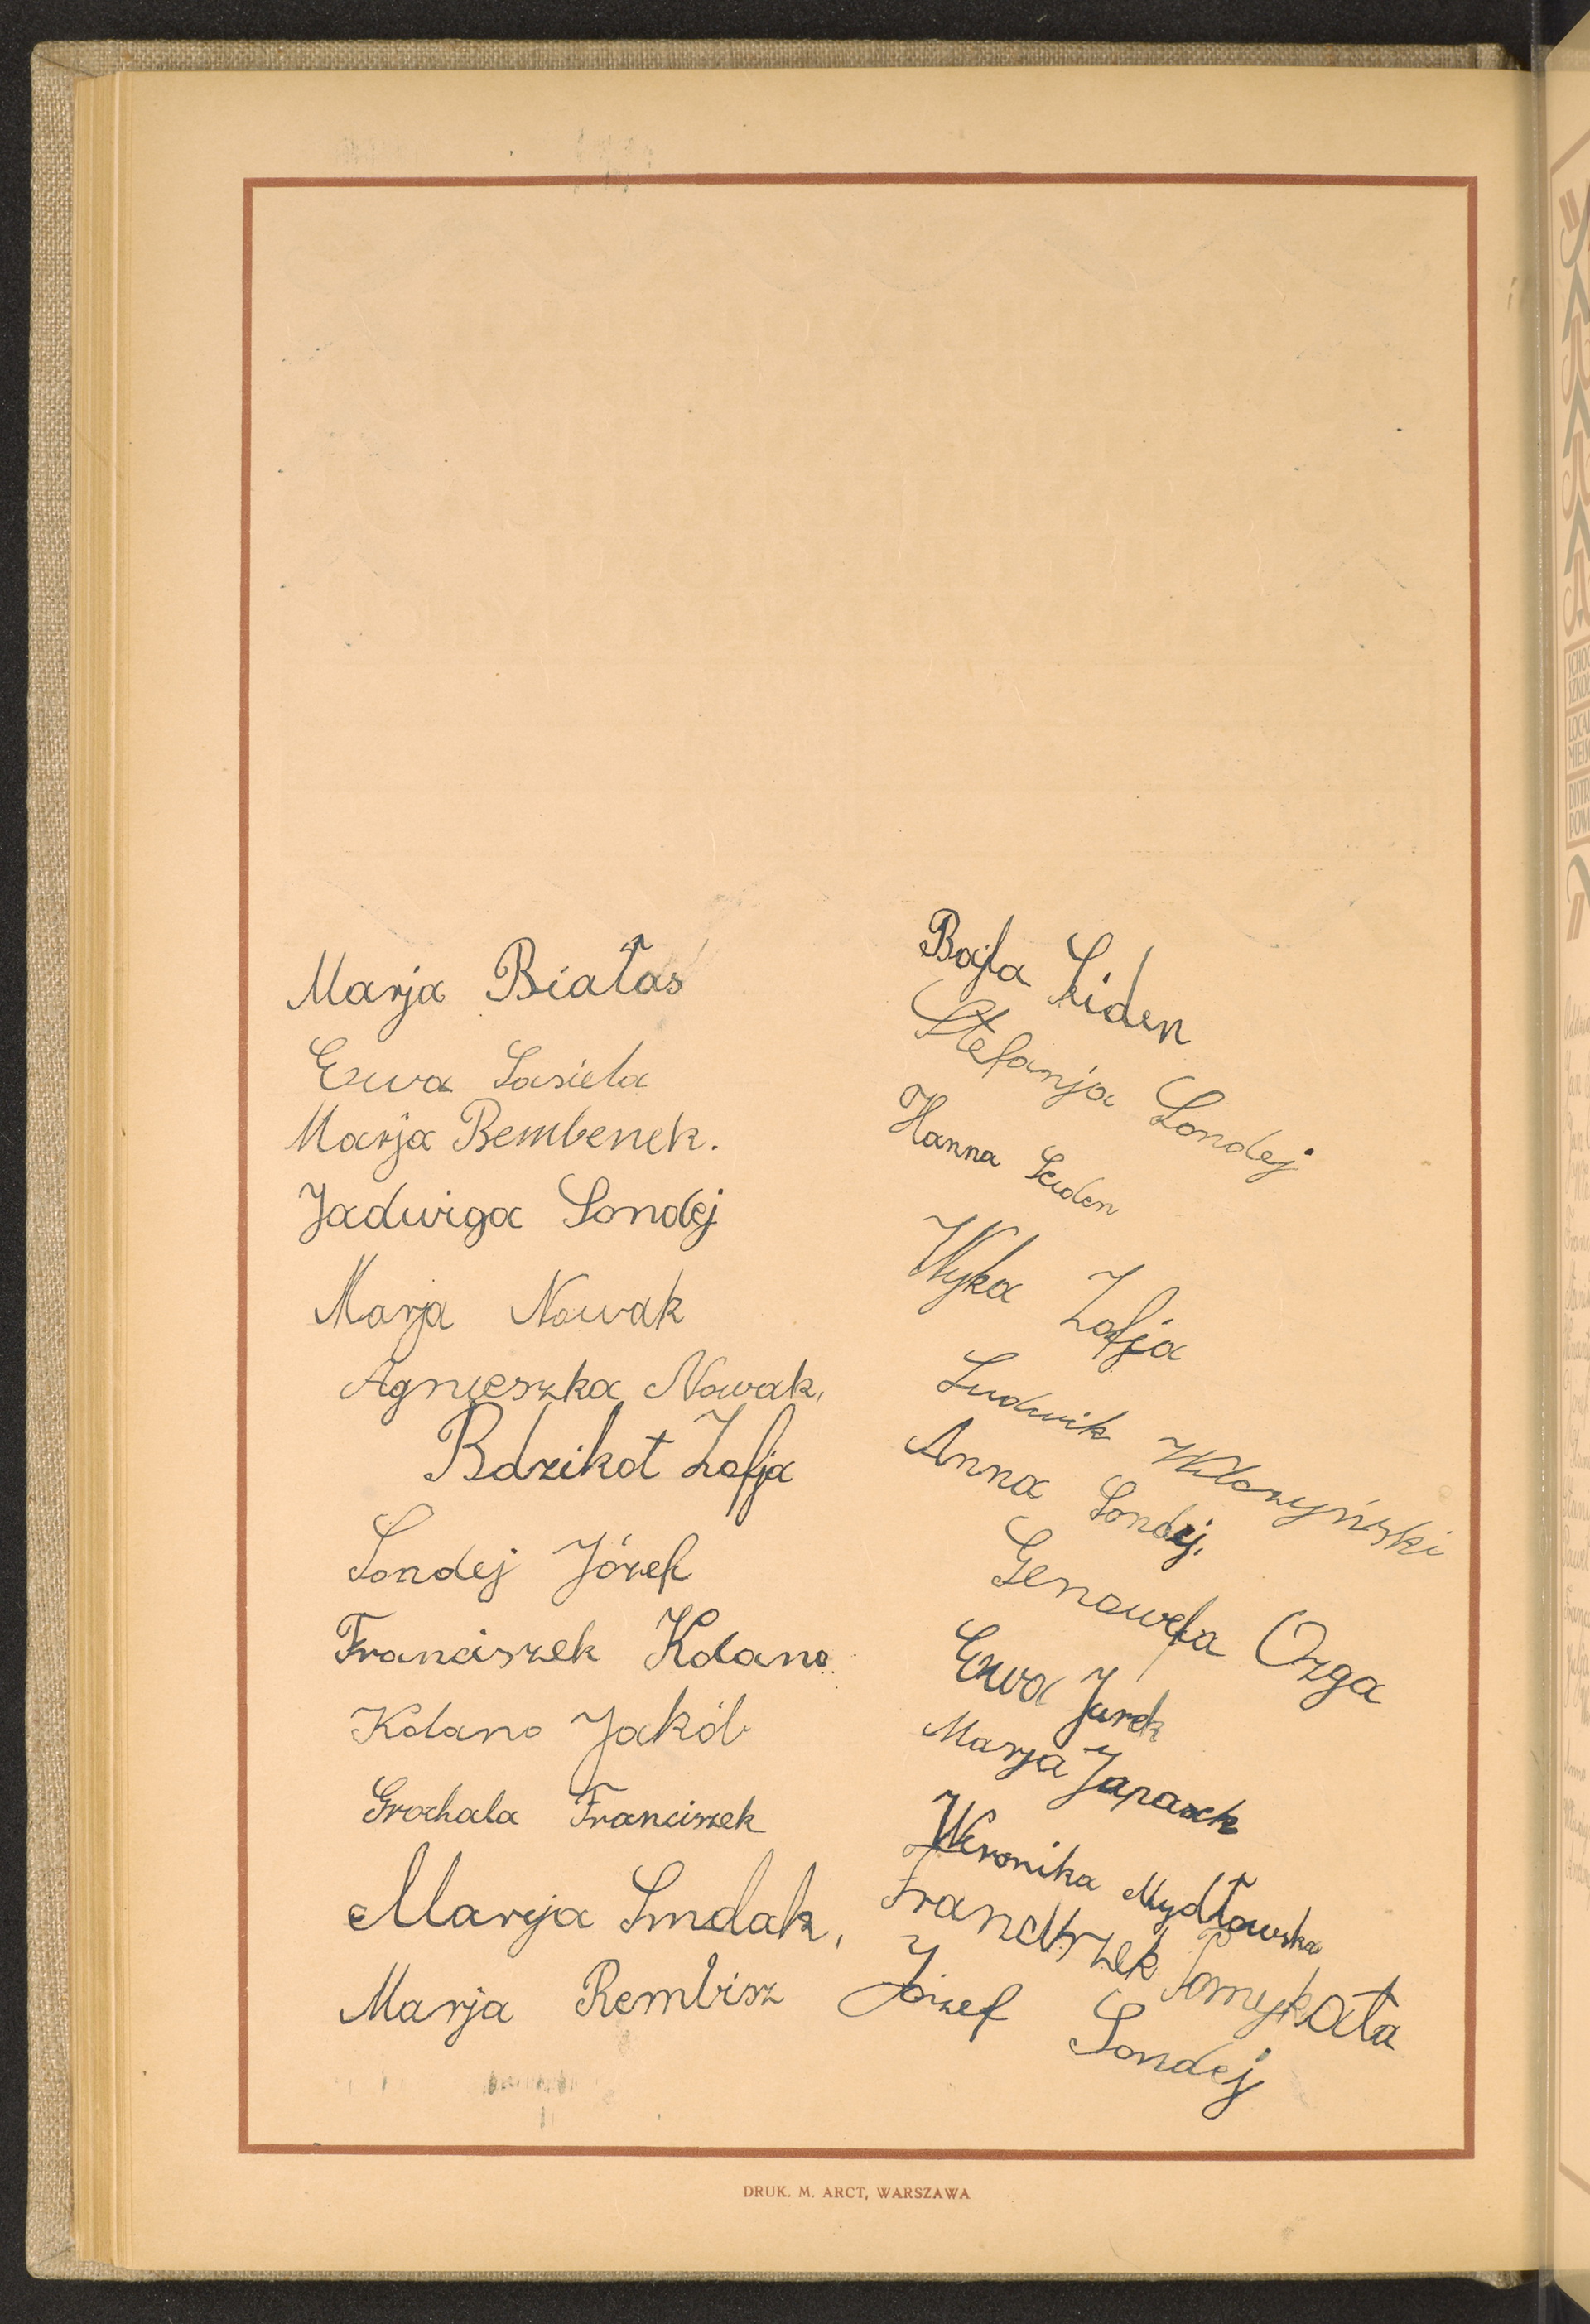 Marja Białas
Ewa Lasiela
Marja Bembenek.
Jadwiga Londej
Marja Nowak
Agnieszka Nowak,
Bdzikot Zofja
Londej Józef
Franciszek Kolano
Kolano Jakób
Grochala Franciszek
Marja Smdak,
Marja Rembisz
Bajla Liden
Stefanja Londej
Hanna Seiden
Wyka Zofja
Ludwik
Anna Londej,
Genowefa Ozga
Ewa Jurek
Marja Japasek
Weronika Mydłowska
Franciszek Pomykała
Józef Londej
DRUK. M. ARCT, WARSZAWA